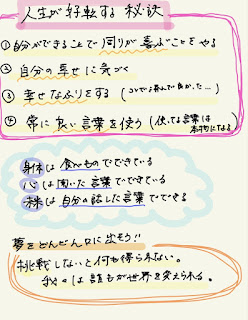 人生が好転する秘訣
① 自分ができることで周りが喜ぶことをやる
② 自分の幸せに気づく
③ 幸せなふりをする
④ 常に良い言葉を使う(使ってる言葉は
本物になる)
身体は食べものでできている
心は聞いた言葉でできている
は自分の話した言葉でできる
夢をどんどん口に出そう!!
挑戦しないと何も得られない。
我々は誰もが世界を変えられる。